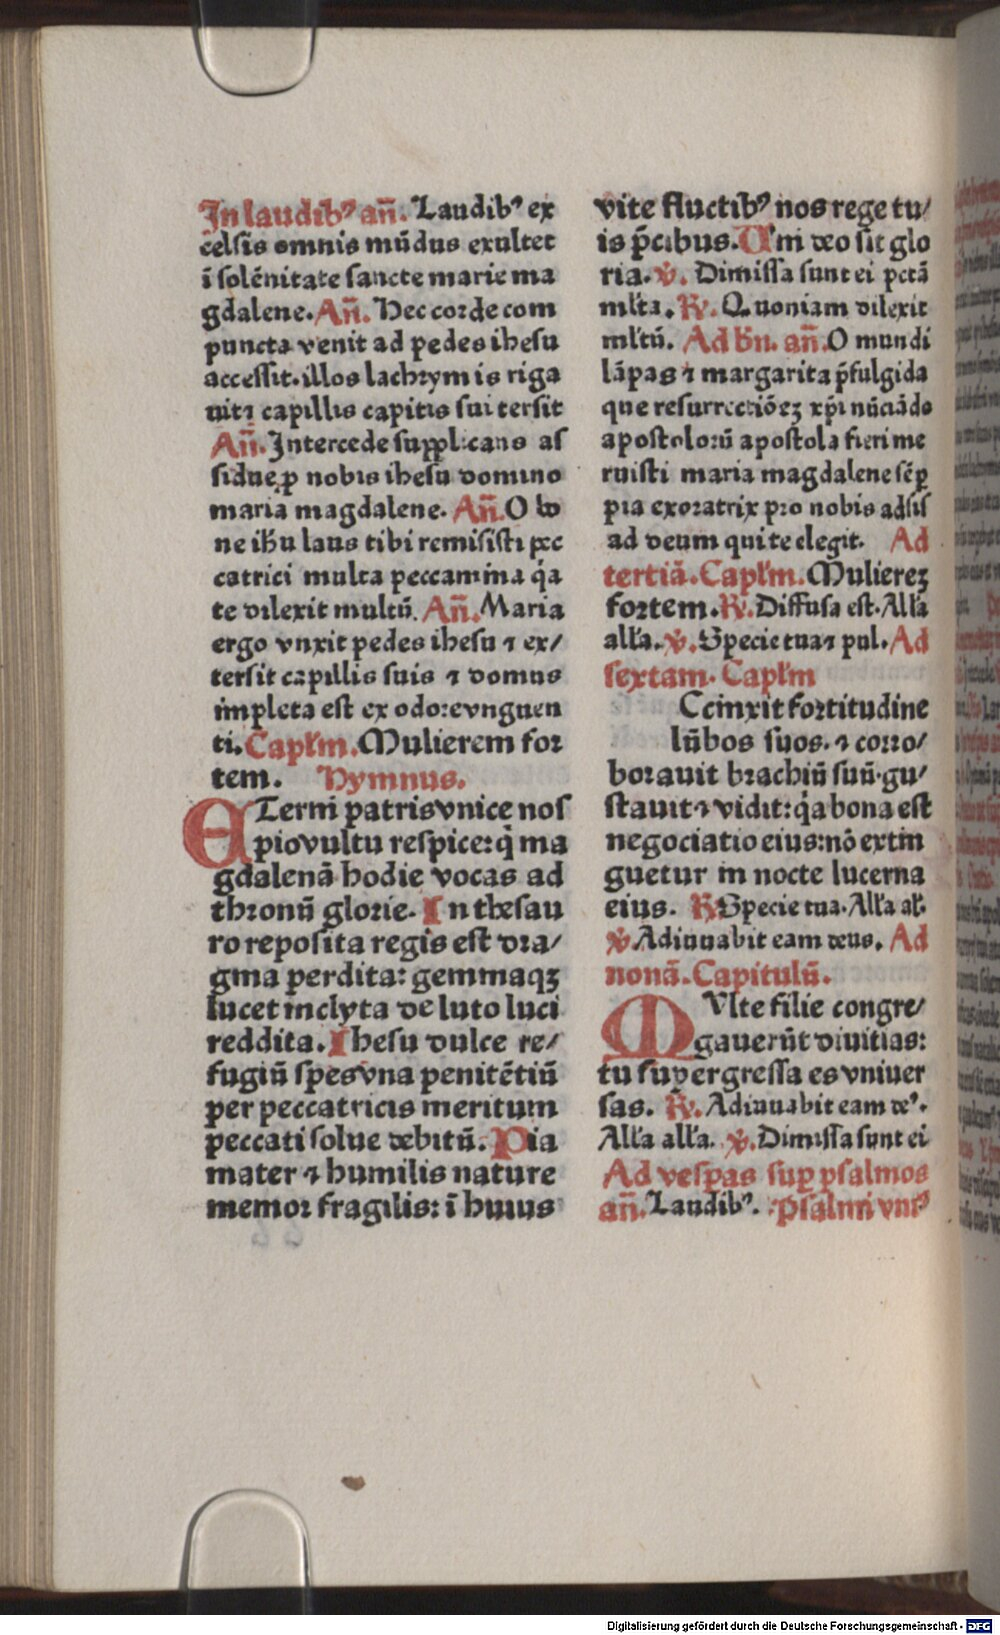 In laudibꝰ an̄. Laudibꝰ ex
celsis omnis mūdus exultet
ī solēnitate sancte marie ma
gdalene. An̄. Hec corde com
puncta venit ad pedes ihesu
accessit. illos lachrymis riga
uit ⁊ capillis capitis sui tersit
An̄. Intercede supplicans as
sidue ꝓ nobis ihesu domino
maria magdalene. An̄. O bo
ne ih̄u laus tibi remisisti pec
catrici multa peccamina q̇a
te dilexit multū. An̄. Maria
ergo vnxit pedes ihesu ⁊ ex/
tersit capillis suis ⁊ domus
impleta est ex odore vnguen
ti. Capl'm. Mulierem for
tem. Hymnus.
ETerni patris vnice nos
pio vultu respice: q̇ ma
gdalenā hodie vocas ad
thronū glorie. In thesau
ro reposita regis est dra/
gma perdita: gemmaqꝫ
lucet inclyta de luto luci
reddita. Ihesu dulce re/
fugiū spes vna penitētiū
per peccatricis meritum
peccati solue debitū. Pia
mater ⁊ humilis nature
memor fragilis: ī huius
vite fluctibꝰ nos rege tu/
is p̄cibus. Uni deo sit glo
ria. ℣. Dimissa sunt ei pctā
ml'ta. ℟. Quoniam dilexit
ml'tū. Ad bn̄. an̄. O mundi
lāpas ⁊ margarita p̄fulgida
que resurrectiōeꝫ xp̄i nūciādo
apostolorū apostola fieri me
ruisti maria magdalene sēꝑ
pia exoratrix pro nobis adsis
ad deum qui te elegit. Ad
tertiā. Capl'm. Muliereꝫ
fortem. ℟. Diffusa est. All'a
all'a. ℣. Specie tua ⁊ pul. Ad
sextam. Capl'm
Ccinxit fortitudine
lūbos suos. ⁊ corro/
borauit brachiū suū. gu/
stauit ⁊ vidit: q̇a bona est
negociatio eius: nō extin
guetur in nocte lucerna
eius. ℟ Specie tua. All'a al'.
℣. Adiuuabit eam deus. Ad
nonā. Capitulū.
MUlte filie congre/
gauerūt diuitias:
tu supergressa es vniuer
sas. ℟. Adiuuabit eam deꝰ.
All'a all'a. ℣. Dimissa sunt ei
Ad vesꝑas suꝑ psalmos
an̄. Laudibꝰ. Psalmi vniꝰ
Digitalisierung gefördert durch die Deutsche Forschungsgemeinschaft - DFG